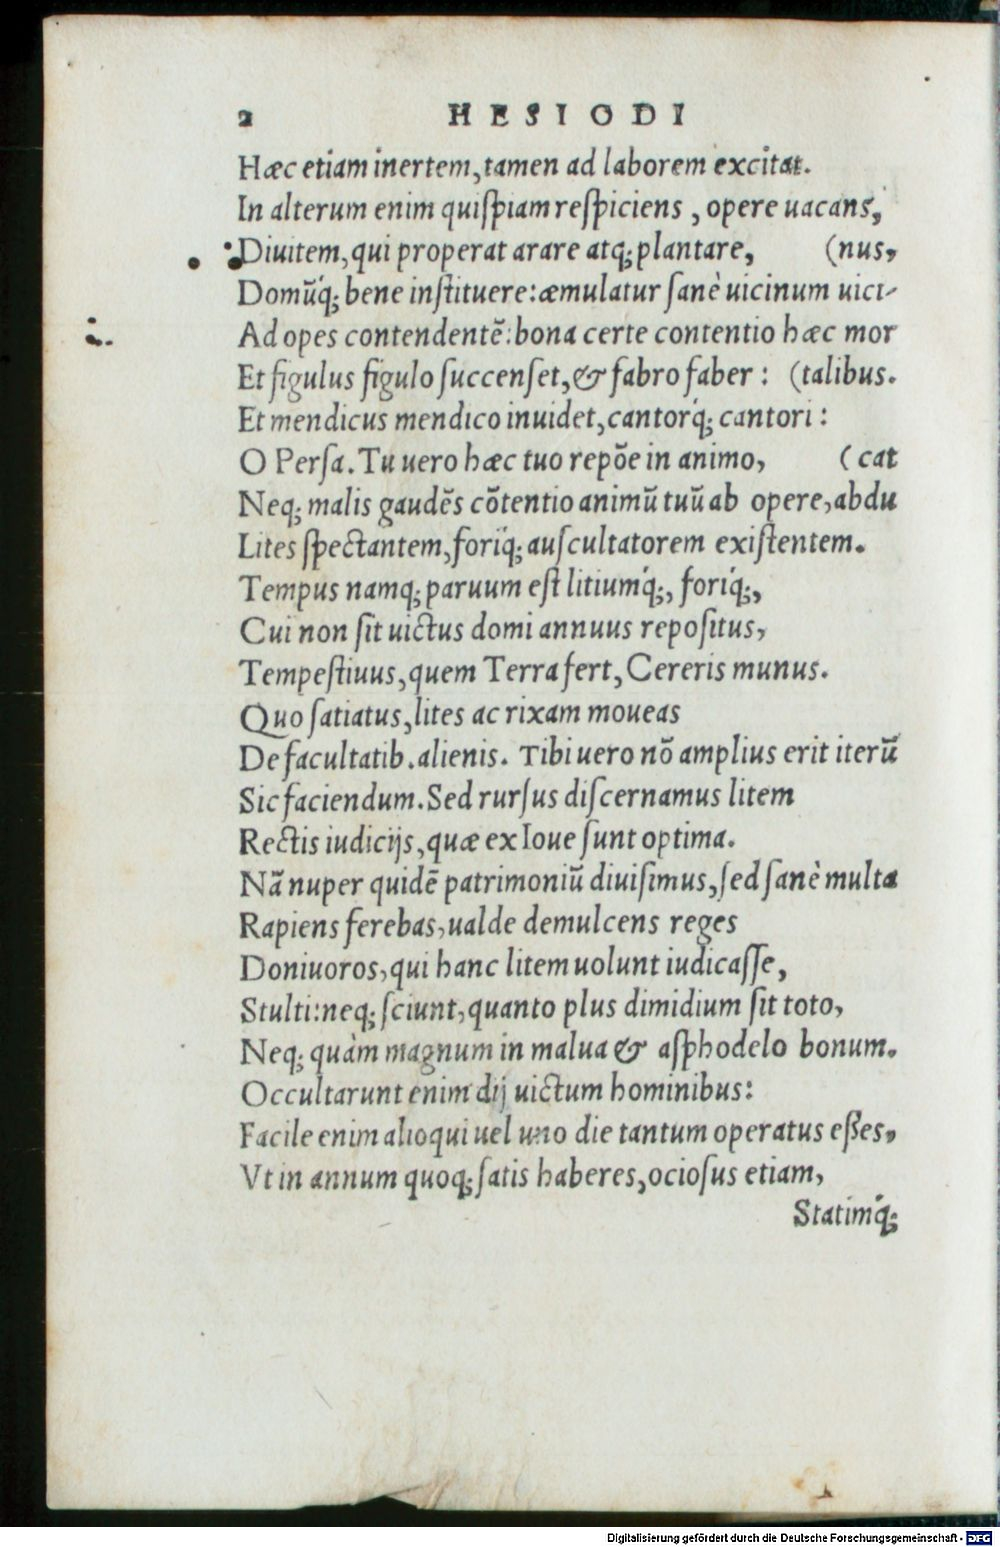 2 HESIODI
Hæc etiam inertem, tamen ad laborem excitat.
In alterum enim quiſpiam reſpiciens, opere uacans,
Diuitem, qui properat arare atq; plantare, (nus,
Domūq́; bene inſtituere: æmulatur ſanè uicinum uici-
Ad opes contendentē: bona certe contentio hæc mor
Et figulus figulo ſuccenſet, & fabro faber: (talibus.
Et mendicus mendico inuidet, cantorq́; cantori:
O Perſa. Tu uero hæc tuo repōe in animo, (cat
Neq; malis gaudēs cōtentio animū tuū ab opere, abdu
Lites ſpectantem, foriq́; auſcultatorem exiſtentem.
Tempus namq; paruum eſt litiumq́;, foriq́;,
Cui non ſit uictus domi annuus repoſitus,
Tempeſtiuus, quem Terra fert, Cereris munus.
Quo ſatiatus, lites ac rixam moueas
De facultatib. alienis. Tibi uero nō amplius erit iterū
Sic faciendum. Sed rurſus diſcernamus litem
Rectis iudicijs, quæ ex Ioue ſunt optima.
Nā nuper quidē patrimoniū diuiſimus, ſed ſanè multa
Rapiens ferebas, ualde demulcens reges
Doniuoros, qui hanc litem uolunt iudicaſſe,
Stulti: neq; ſciunt, quanto plus dimidium ſit toto,
Neq; quàm magnum in malua & aſphodelo bonum.
Occultarunt enim dij uictum hominibus:
Facile enim alioqui uel uno die tantum operatus eſſes,
Vt in annum quoq; ſatis haberes, ocioſus etiam,
Statimq́;
Digitalisierung gefördert durch die Deutsche Forschungsgemeinschaft - DFG